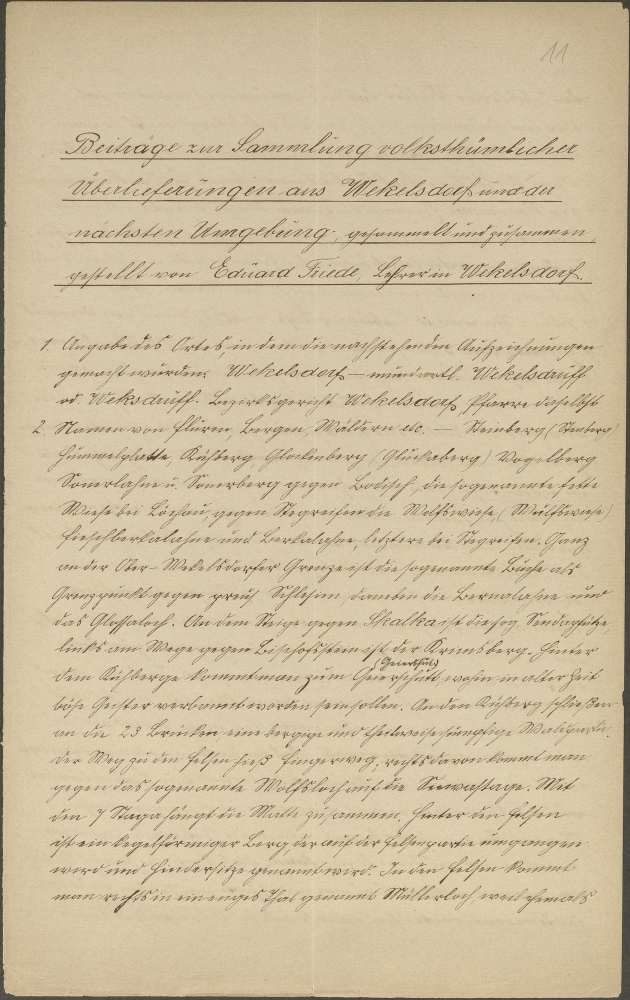 11
Beiträge zur Sammlung volksthümlicher
Überlieferungen aus Wekelsdorf und der
nächsten Umgebung, gesammelt und zusammen
gestellt von Eduard Friede, Lehrer in Wekelsdorf.
1. Angabe des Ortes, in dem die nachstehenden Aufzeichnungen
gemacht wurden: Wekelsdorf – mundartl. Wekelsdruff
od. Weksdruff. Bezirksgericht Wekelsdorf, Pfarre daselbst
2. Namen von Fluren, Bergen, Wäldern etc. — Steinberg
Himmelplatte, Kühberg, Glockenberg (Glückaberg) Vogelberg
Sonerlahne u. Sonerberg gegen Bodisch, die sogenannte fette
Wiese bei Lözsau, gegen Stegreifen die Wolfswiese, (Wulfswiese)
und Berkalahne, letztere bei Stegreifen. Ganz
an der Ober-Wekelsdorfer Grenze ist die sogenannte Buche als
Grenzpunkt gegen preuß Schlesien, daneben die Bernalahne und
das Glassaloch. An dem Steige gegen Skalka ist die sog.
links am Wege gegen Bischofstein ist der Krimsberg. Hinter
dem Kühberge kommt man zum Geierschütt, wohin in alter Zeit
böse Geister verbannt worden sein sollen. An den Kühberg schließen
an die 23 Brücken eine bergige und theilweise sumpfige
der Weg zu den Felsen hieß Fingerweg, rechts davon kommt man
gegen das sogenannte Wolfsloch auf die Mit
den 7 Stega hängt die Matte zusammen. Hinter den Felsen
ist ein kegelförmiger Berg der auf der Felsenpartie umgangen
wird und Hindersitze genannt wird. In den Felsen kommt
man rechts in ein enges Thal genannt Müllerloch weil ehemals